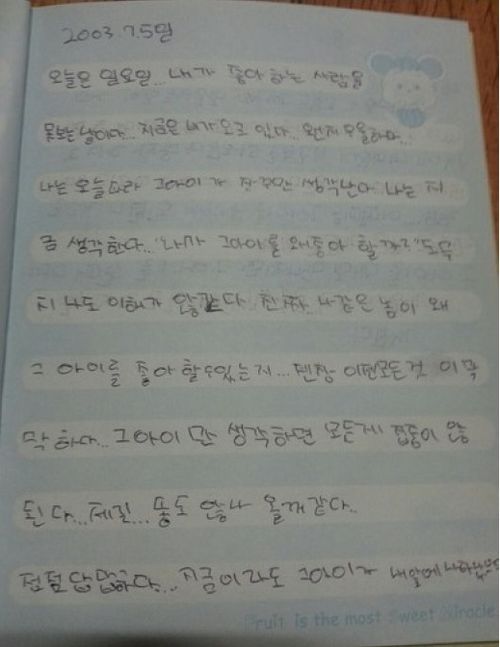 2003.7.5일
오늘은 일요일...내가 좋아하는 사람을
못보는 날이다...지금은 비가오고 있다...왠지 우울하다...
나는 오늘따라 그아이가 자꾸만 생각난다 나는 지
금 생각한다.."내가 그아이를 왜좋아 할까?"도무
지 나도 이해가 않갔다 진짜..나같은 놈이 왜
그 아이를 좋아 할수있는지...젠장 이젠모든것 이 막
막 하다...그아이 만 생각하면 모든게 집중이 않
된다...제길...똥도 않나 올꺼같다..
점점 답답하다...지금이라도 그아이가 내앞에
Fruit is the most Sweet Miracle